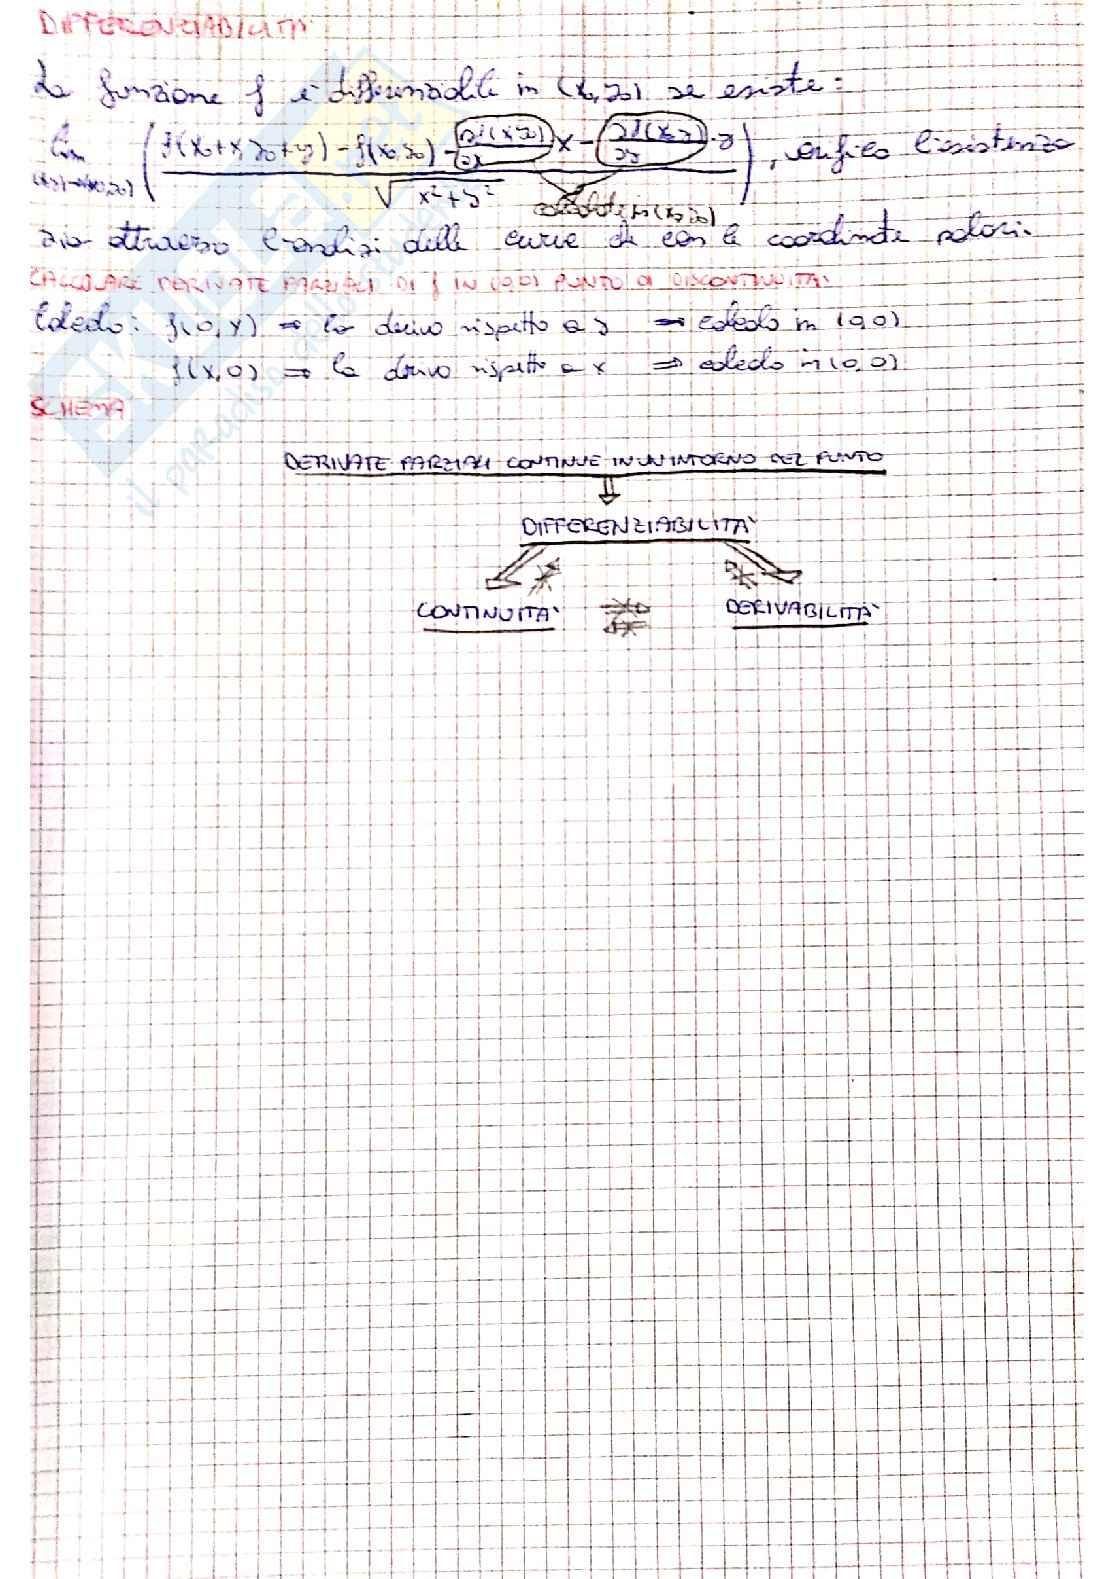 DIFFERENZIABILITÀ
La funzione f è differenziabile in (x₀,y₀) se esiste:
lim (x,y)→(x₀,y₀) ( f(x₀+x,y₀+y) - f(x₀,y₀) - ∂f(x₀,y₀)/∂x x - ∂f(x₀,y₀)/∂y · y / √x²+y² ), verifico l'esistenza
calcolate in (x₀,y₀)
sia attraverso l'analisi delle curve che con le coordinate polari.
CALCOLARE DERIVATE PARZIALI DI f IN (0,0) PUNTO DI DISCONTINUITÀ:
Calcolo: f(0,y) ⇒ la derivo rispetto a y ⇒ calcolo in (0,0)
f(x,0) ⇒ la derivo rispetto a x ⇒ calcolo in (0,0)
SCHEMA
DERIVATE PARZIALI CONTINUE IN UN INTORNO DEL PUNTO
DIFFERENZIABILITÀ
CONTINUITÀ DERIVABILITÀ
SKUOLA.net
il paradiso dello studente